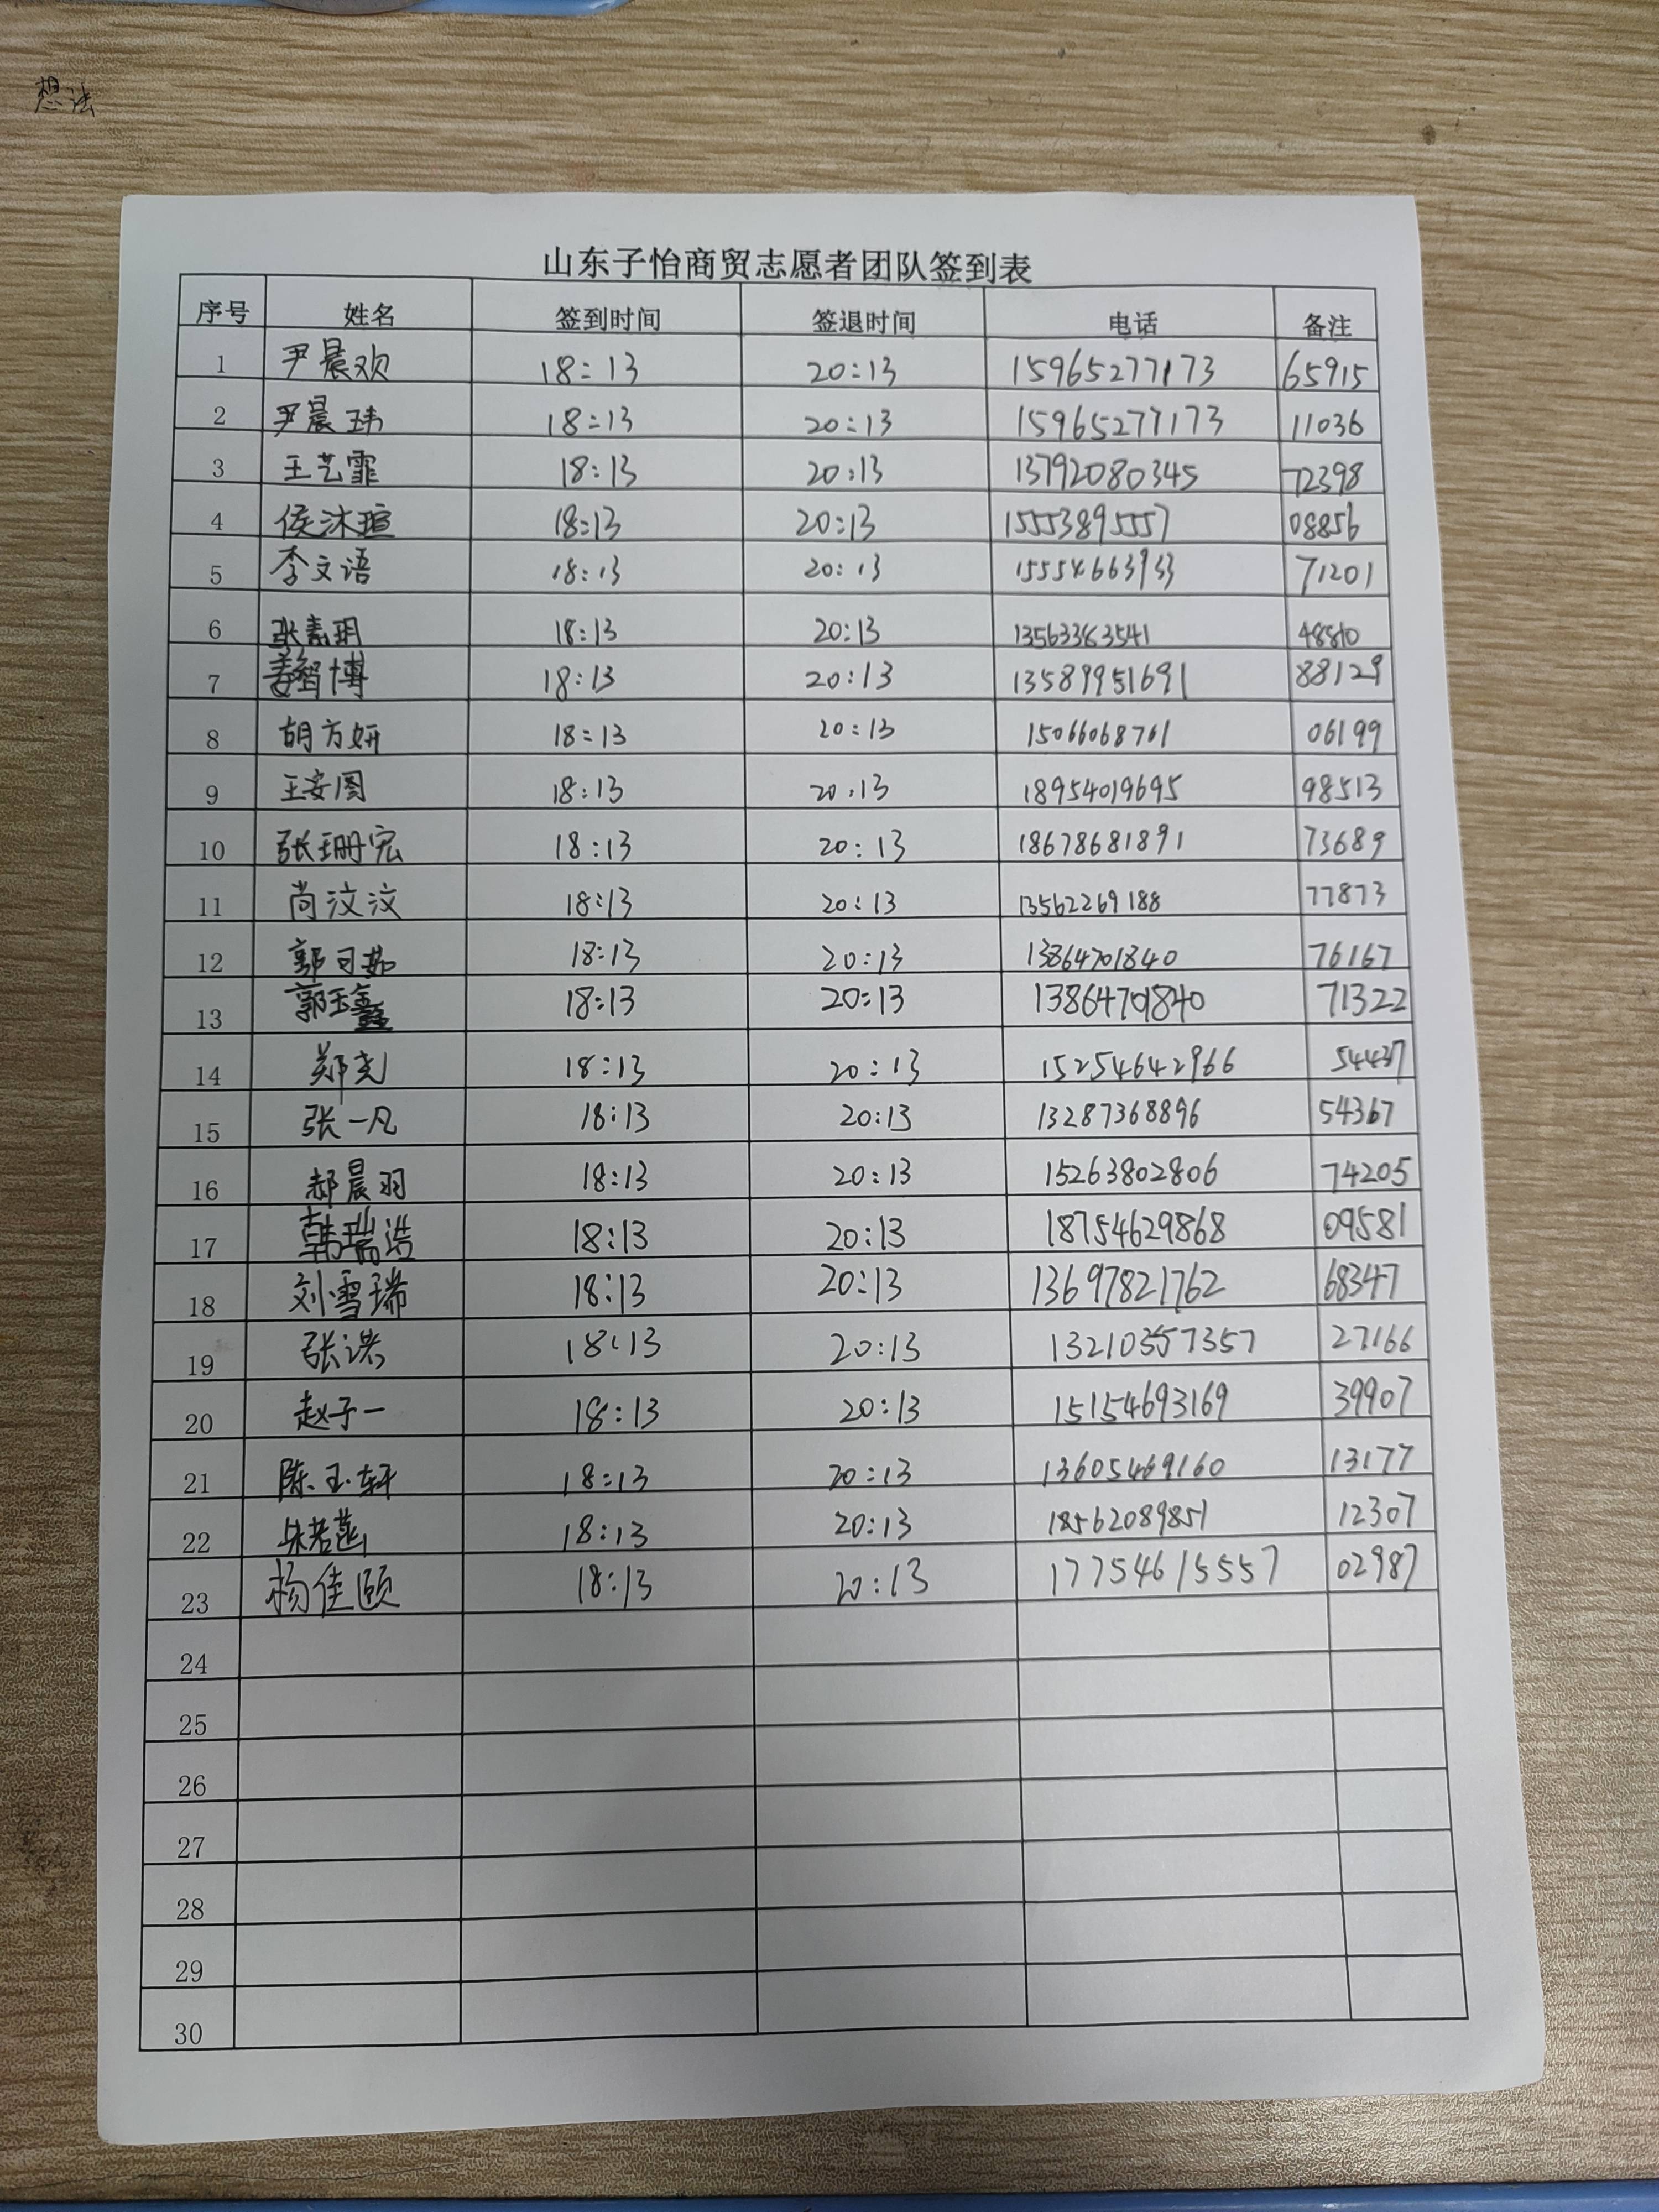 想法
山东子怡商贸志愿者团队签到表
序号 姓名 签到时间 签退时间 电话 备注
1 尹晨欢 18:13 20:13 15965277173 65915
2 尹晨玮 18:13 20:13 15965277173 11036
3 王艺霏 18:13 20:13 13792080345 72398
4 侯沐瑄 18:13 20:13 15553895557 08856
5 李文语 18:13 20:13 15554663933 71201
6 张嘉玥 18:13 20:13 13563363541 48810
7 姜智博 18:13 20:13 13589951691 88129
8 胡方妍 18:13 20:13 15066068761 06199
9 王安图 18:13 20:13 18954019695 98513
10 张珊宏 18:13 20:13 18678681891 73689
11 尚汶汶 18:13 20:13 13562269188 77873
12 郭可茹 18:13 20:13 13864701840 76167
13 郭玉鑫 18:13 20:13 13864701840 71322
14 郑尧 18:13 20:13 15254642966 54437
15 张一凡 18:13 20:13 13287368896 54367
16 郝晨羽 18:13 20:13 15263802806 74205
17 韩瑞浩 18:13 20:13 18754629868 09581
18 刘雪瑞 18:13 20:13 13697821762 68347
19 张淇 18:13 20:13 13210357357 27166
20 赵子一 18:13 20:13 15154693169 39907
21 陈玉轩 18:13 20:13 13605469160 13177
22 朱若菡 18:13 20:13 18562089851 12307
23 杨佳颐 18:13 20:13 17754615557 02987
24
25
26
27
28
29
30